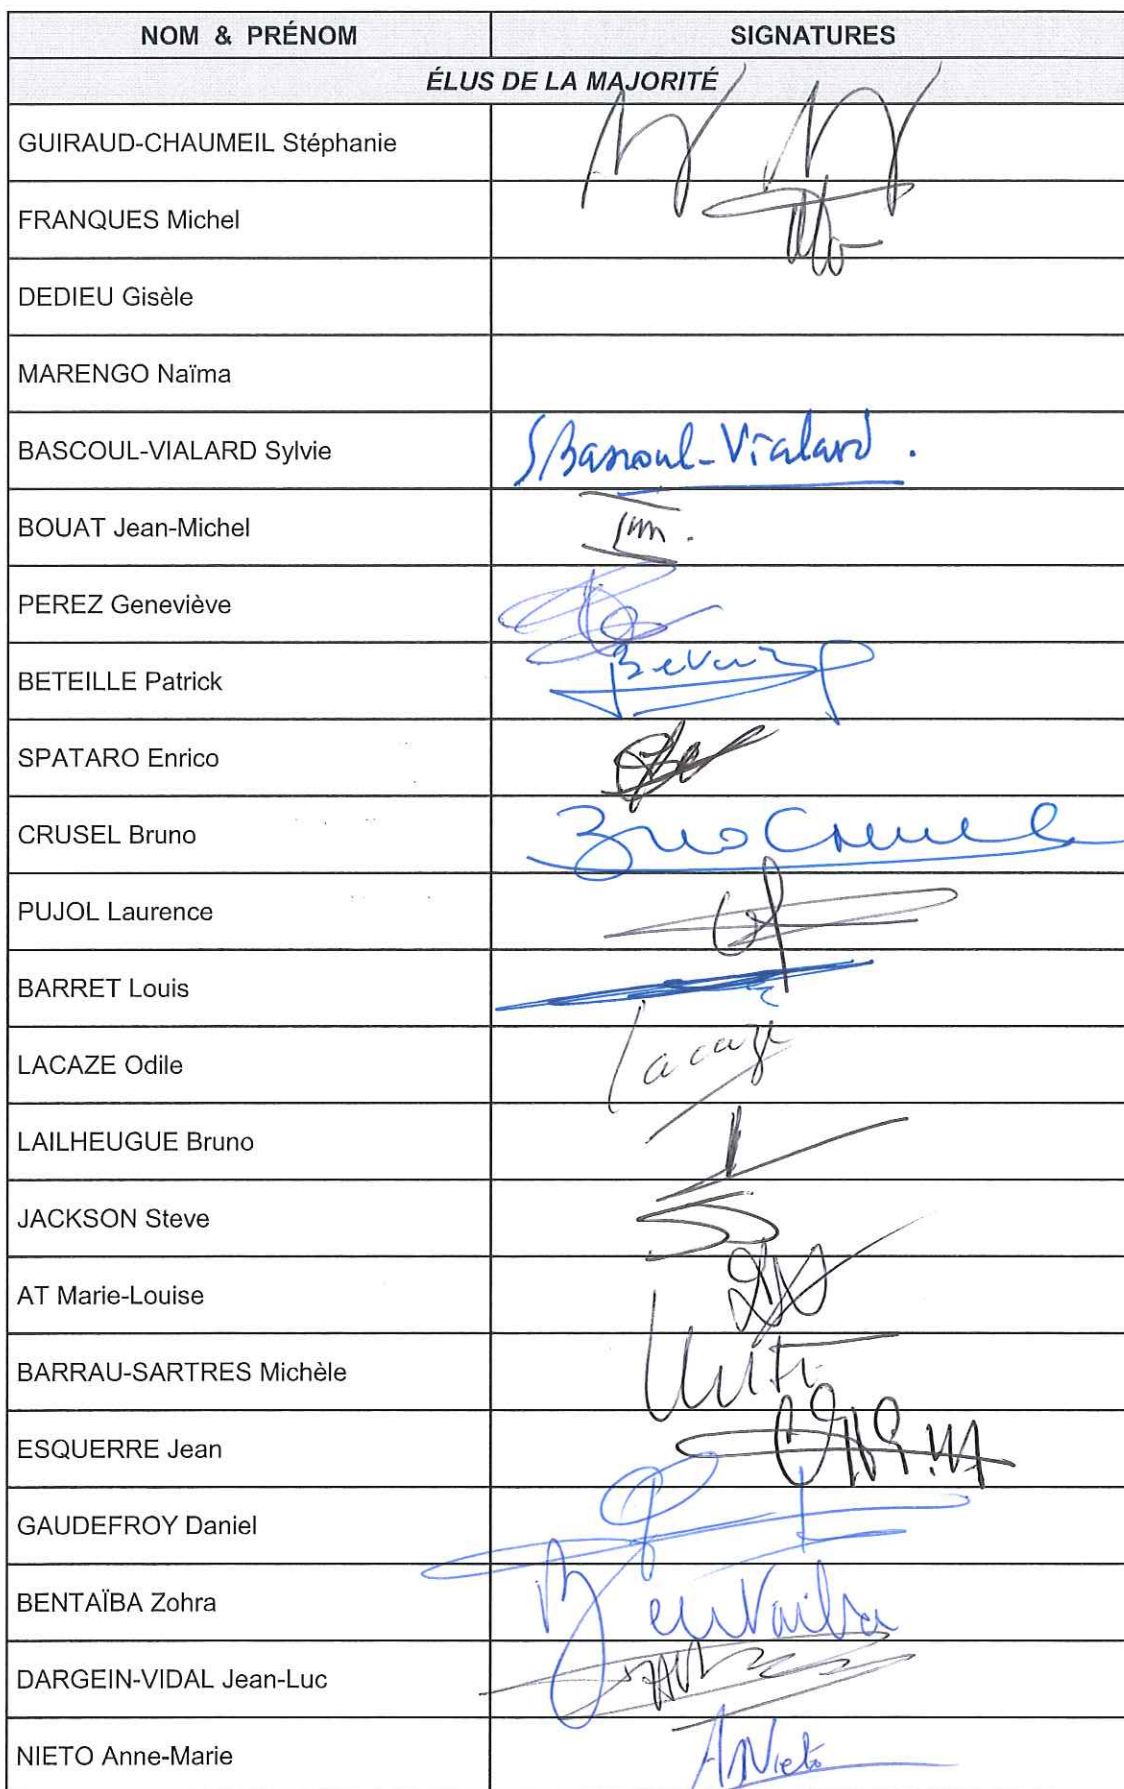 NOM & PRÉNOM SIGNATURES
ÉLUS DE LA MAJORITÉ
GUIRAUD-CHAUMEIL Stéphanie
FRANQUES Michel
DEDIEU Gisèle
MARENGO Naïma
BASCOUL-VIALARD Sylvie SBascoul-Vialard.
BOUAT Jean-Michel
PEREZ Geneviève
BETEILLE Patrick
SPATARO Enrico
CRUSEL Bruno Bruno Crusel
PUJOL Laurence
BARRET Louis
LACAZE Odile Lacaze
LAILHEUGUE Bruno
JACKSON Steve
AT Marie-Louise
BARRAU-SARTRES Michèle
ESQUERRE Jean
GAUDEFROY Daniel
BENTAÏBA Zohra Bentaiba
DARGEIN-VIDAL Jean-Luc
NIETO Anne-Marie AMNieto